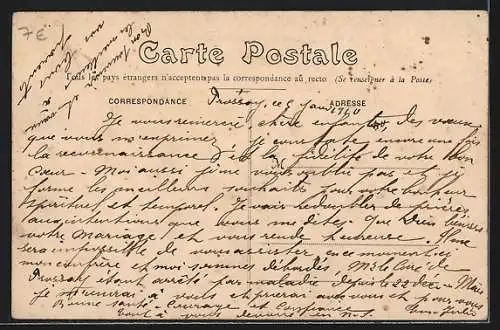 7E
Carte Postale
Tous les pays étrangers n'acceptent pas la correspondance au recto (Se renseigner à la Poste)
CORRESPONDANCE
ADRESSE
ce 9 janv 1910
Je vous remercie chère enfant des vœux
que vous m'exprimez Je constate encore une fois
la reconnaissance et la fidélité de votre bon
cœur - Moi aussi je ne vous oublie pas et je
forme les meilleurs souhaits pour votre bonheur
spirituel et temporel. Je vais redoubler de prières
aux intentions que vous me dites. Que Dieu bénisse
votre Mariage et vous rende heureuse. Il me
sera impossible de vous assister en ce moment ici
mon confrère et moi sommes débordés, Mr le Curé de
étant arrêté par maladie depuis le 23 Déc - Mais
je m'unirai à vous et prierai avec vous et pour vous
Bonne santé - Courage et Confiance
Tout à vous en N.S.